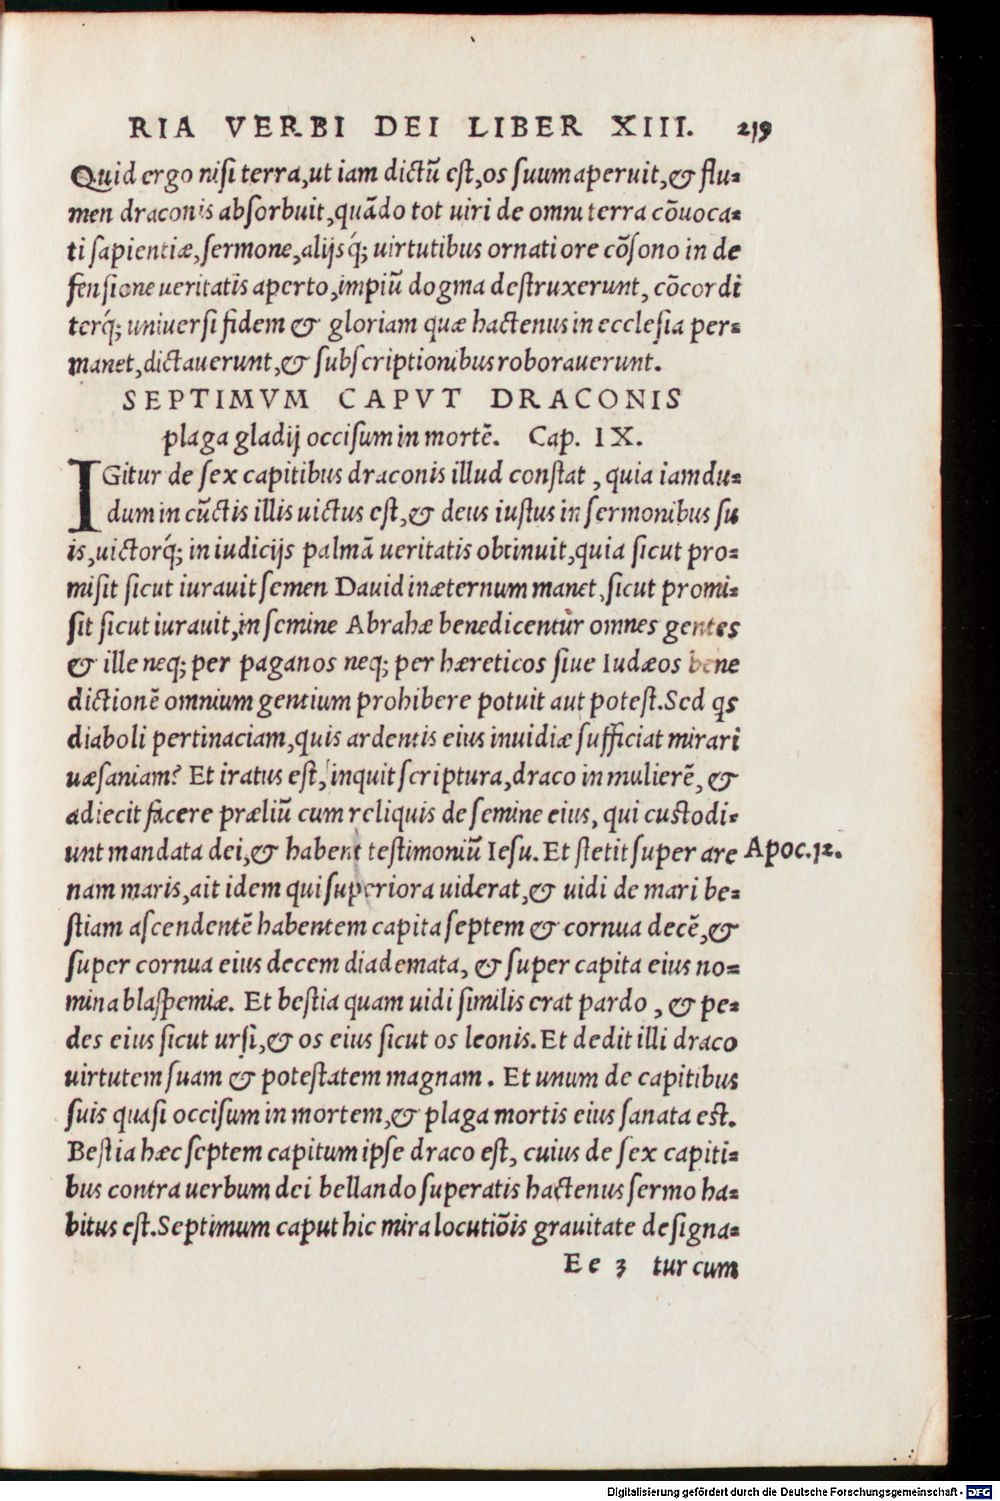 RIA VERBI DEI LIBER XIII. 219
Quid ergo nisi terra,ut iam dictũ est,os suum aperuit,& flu-
men draconis absorbuit,quãdo tot uiri de omni terra cõuoca-
ti sapientiæ,sermone,alijsq́; uirtutibus ornati ore cõsono in de
fensione ueritatis aperto,impiũ dogma destruxerunt, cõcordi
terq́; uniuersi fidem & gloriam quæ hactenus in ecclesia per-
manet,dictauerunt,& subscriptionibus roborauerunt.
SEPTIMVM CAPVT DRACONIS
plaga gladij occisum in mortẽ. Cap. IX.
IGitur de sex capitibus draconis illud constat, quia iamdu-
dum in cũctis illis uictus est,& deus iustus in sermonibus su
is,uictorq́; in iudicijs palmã ueritatis obtinuit,quia sicut pro-
misit sicut iurauit semen Dauid inæternum manet,sicut promi-
sit sicut iurauit,in semine Abrahæ benedicentur omnes gentes
& ille neq; per paganos neq; per hæreticos siue Iudæos bene
dictionẽ omnium gentium prohibere potuit aut potest.Sed qs
diaboli pertinaciam,quis ardentis eius inuidiæ sufficiat mirari
uæsaniam? Et iratus est, inquit scriptura,draco in mulierẽ, &
adiecit facere præliũ cum reliquis de semine eius, qui custodi-
unt mandata dei,& habent testimoniũ Iesu. Et stetit super are Apoc.12.
nam maris,ait idem qui superiora uiderat,& uidi de mari be-
stiam ascendentẽ habentem capita septem & cornua decẽ,&
super cornua eius decem diademata, & super capita eius no-
mina blaspemiæ. Et bestia quam uidi similis erat pardo, & pe-
des eius sicut ursi,& os eius sicut os leonis. Et dedit illi draco
uirtutem suam & potestatem magnam. Et unum de capitibus
suis quasi occisum in mortem,& plaga mortis eius sanata est.
Bestia hæc septem capitum ipse draco est, cuius de sex capiti-
bus contra uerbum dei bellando superatis hactenus sermo ha-
bitus est.Septimum caput hic mira locutiõis grauitate designa-
Ee 3 tur cum
Digitalisierung gefördert durch die Deutsche Forschungsgemeinschaft - DFG